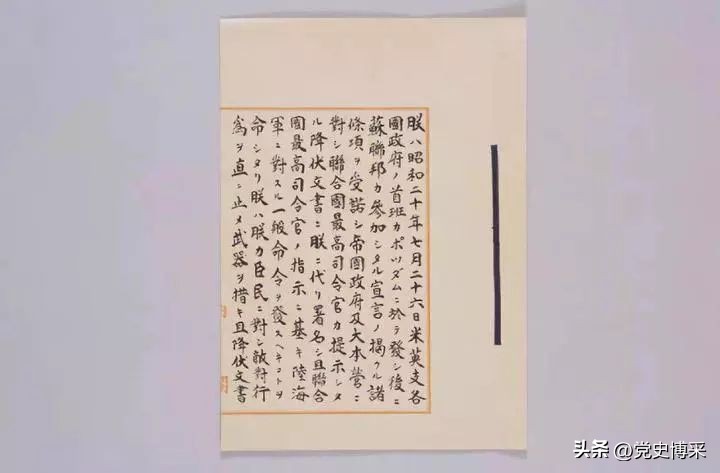 朕ハ昭和二十年七月二十六日米英支各
國政府ノ首班カポツダムニ於テ發シ後ニ
蘇聯邦カ參加シタル宣言ノ掲クル諸
條項ヲ受諾シ帝國政府及大本營ニ
對シ聯合國最高司令官カ提示シタ
ル降伏文書ニ朕ニ代リ署名シ且聯合
國最高司令官ノ指示ニ基キ陸海
軍ニ對スル一般命令ヲ發スヘキコトヲ
命シタリ朕ハ朕カ臣民ニ對シ敵對行
爲ヲ直ニ止メ武器ヲ措キ且降伏文書
头条 @党史博采